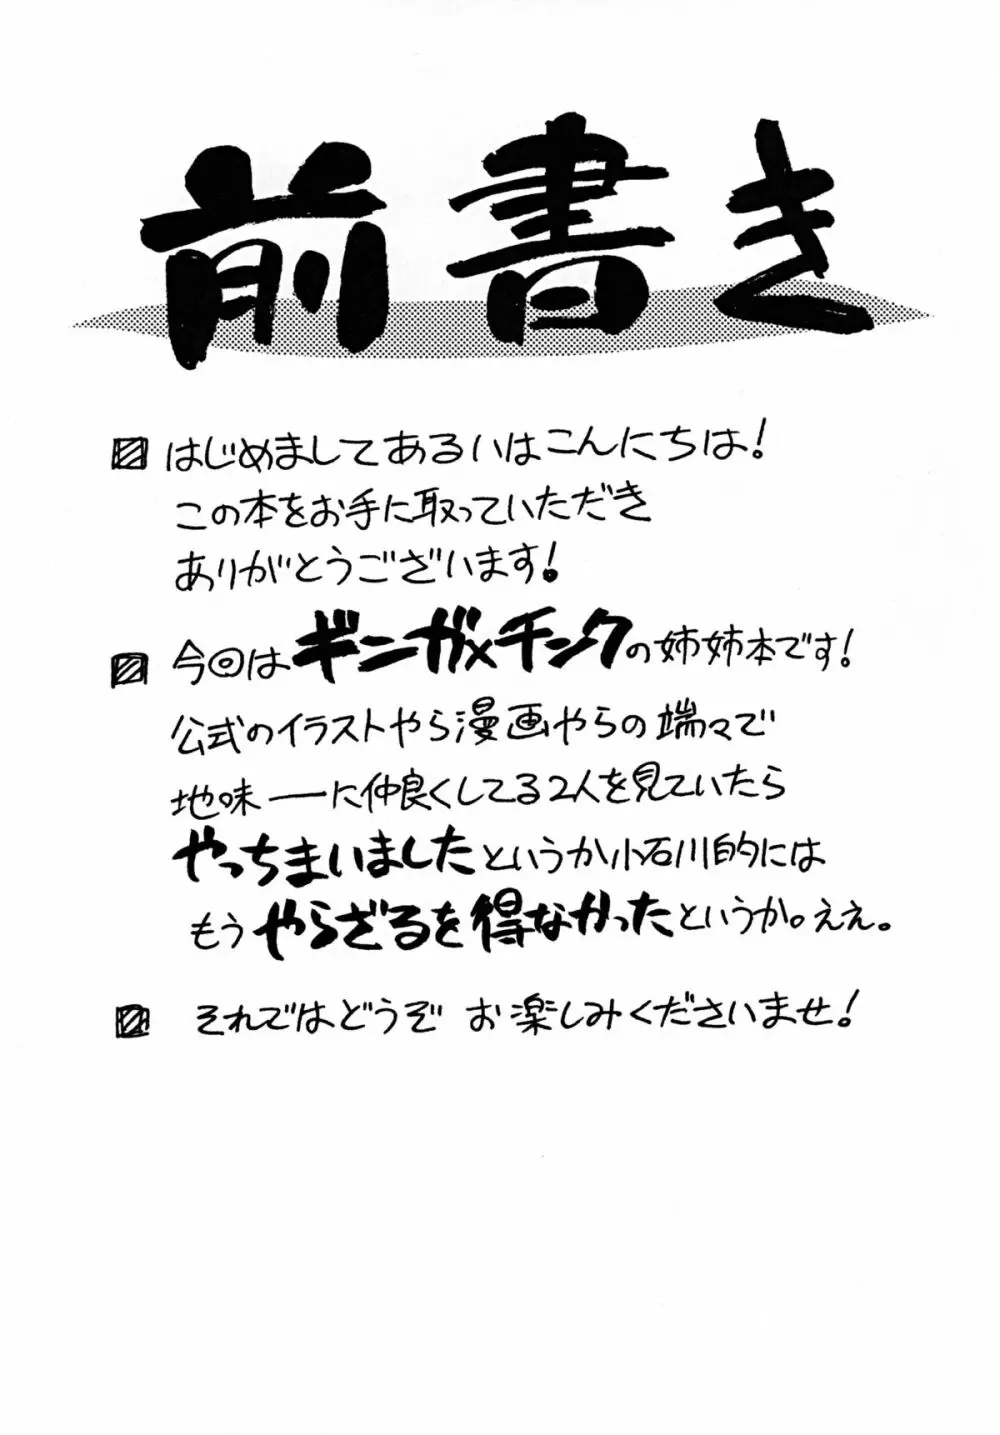 前書き
はじめましてあるいはこんにちは！
この本をお手に取っていただき
ありがとうございます！
今回はギンガ×チンクの姉姉本です！
公式のイラストやら漫画やらの端々で
地味ーーに仲良くしてる2人を見ていたら
やっちまいましたというか小石川的には
もうやらざるを得なかったというか。ええ。
それではどうぞ お楽しみくださいませ！